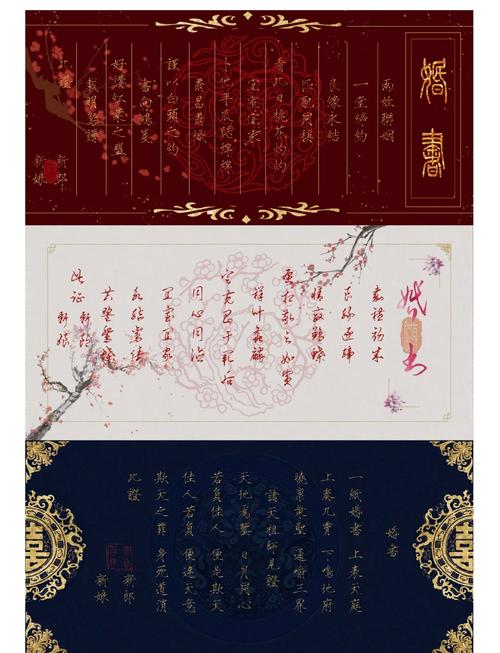 婚書
兩姓聯姻
一堂締約
良緣永結
匹配同稱
看此日桃花灼灼
宜室宜家
卜他年瓜瓞綿綿
爾昌爾熾
謹以白頭之約
書向鴻箋
好將紅葉之盟
載明鴛譜
此證
新郎
新娘
婚书
嘉礼初成
良缘遂缔
情敦鹣鲽
愿相敬之如宾
祥叶螽麟
定克昌于厥后
同心同德
宜室宜家
永结鸾俦
共盟鸳蝶
此证 新郎
新娘
婚書
一紙婚書 上表天庭
上奏九霄 下鳴地府
曉禀眾聖 通喻三界
諸天祖師見證
天地為鑒 日月同心
若負佳人 便是欺天
佳人若負 便逢天意
欺天之罪 身死道消
此證
新郎
新娘
囍
囍